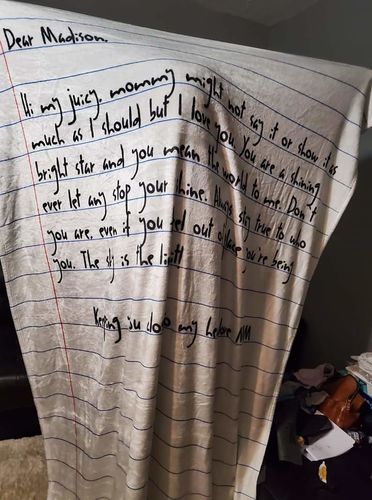 Dear Madison.
Hi my juicy, mommy might not say it or show it as
much as I should but I love you. You are a shining
bright star and you mean the world to me. Don't
ever let any stop your shine. Always stay true to who
you are. even if you feel out of place you're being
you. The sky is the limit!